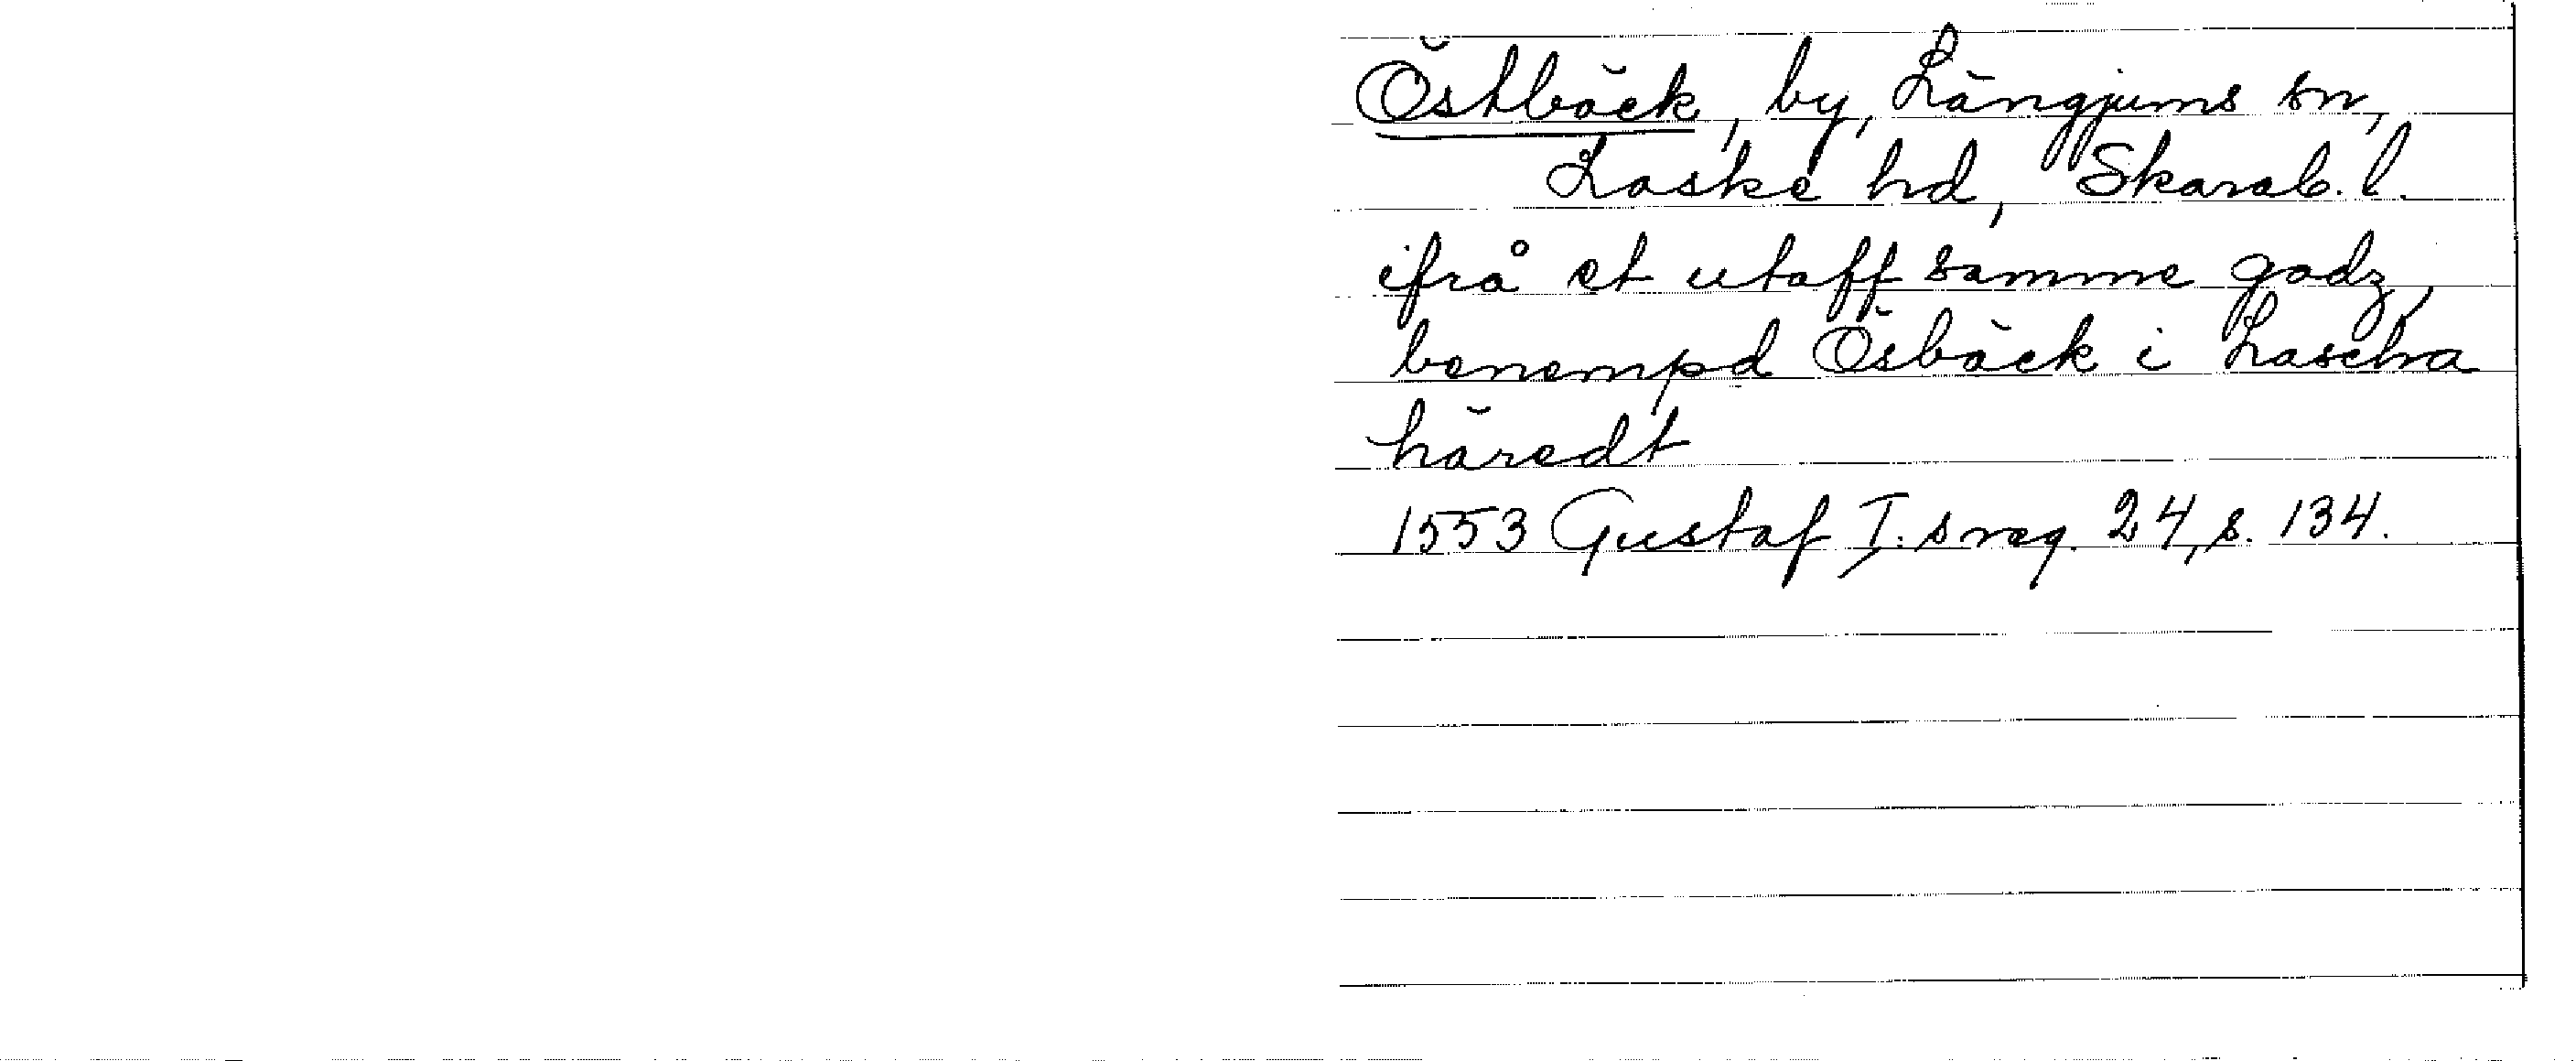 Östbäck, by, Längjums sn,
Laske hd, Skarab. l.
ifrå et utaff samme godz,
benempd Ösbäck i Lascha
häredt
1553 Gustaf I:s reg. 24, s. 134.